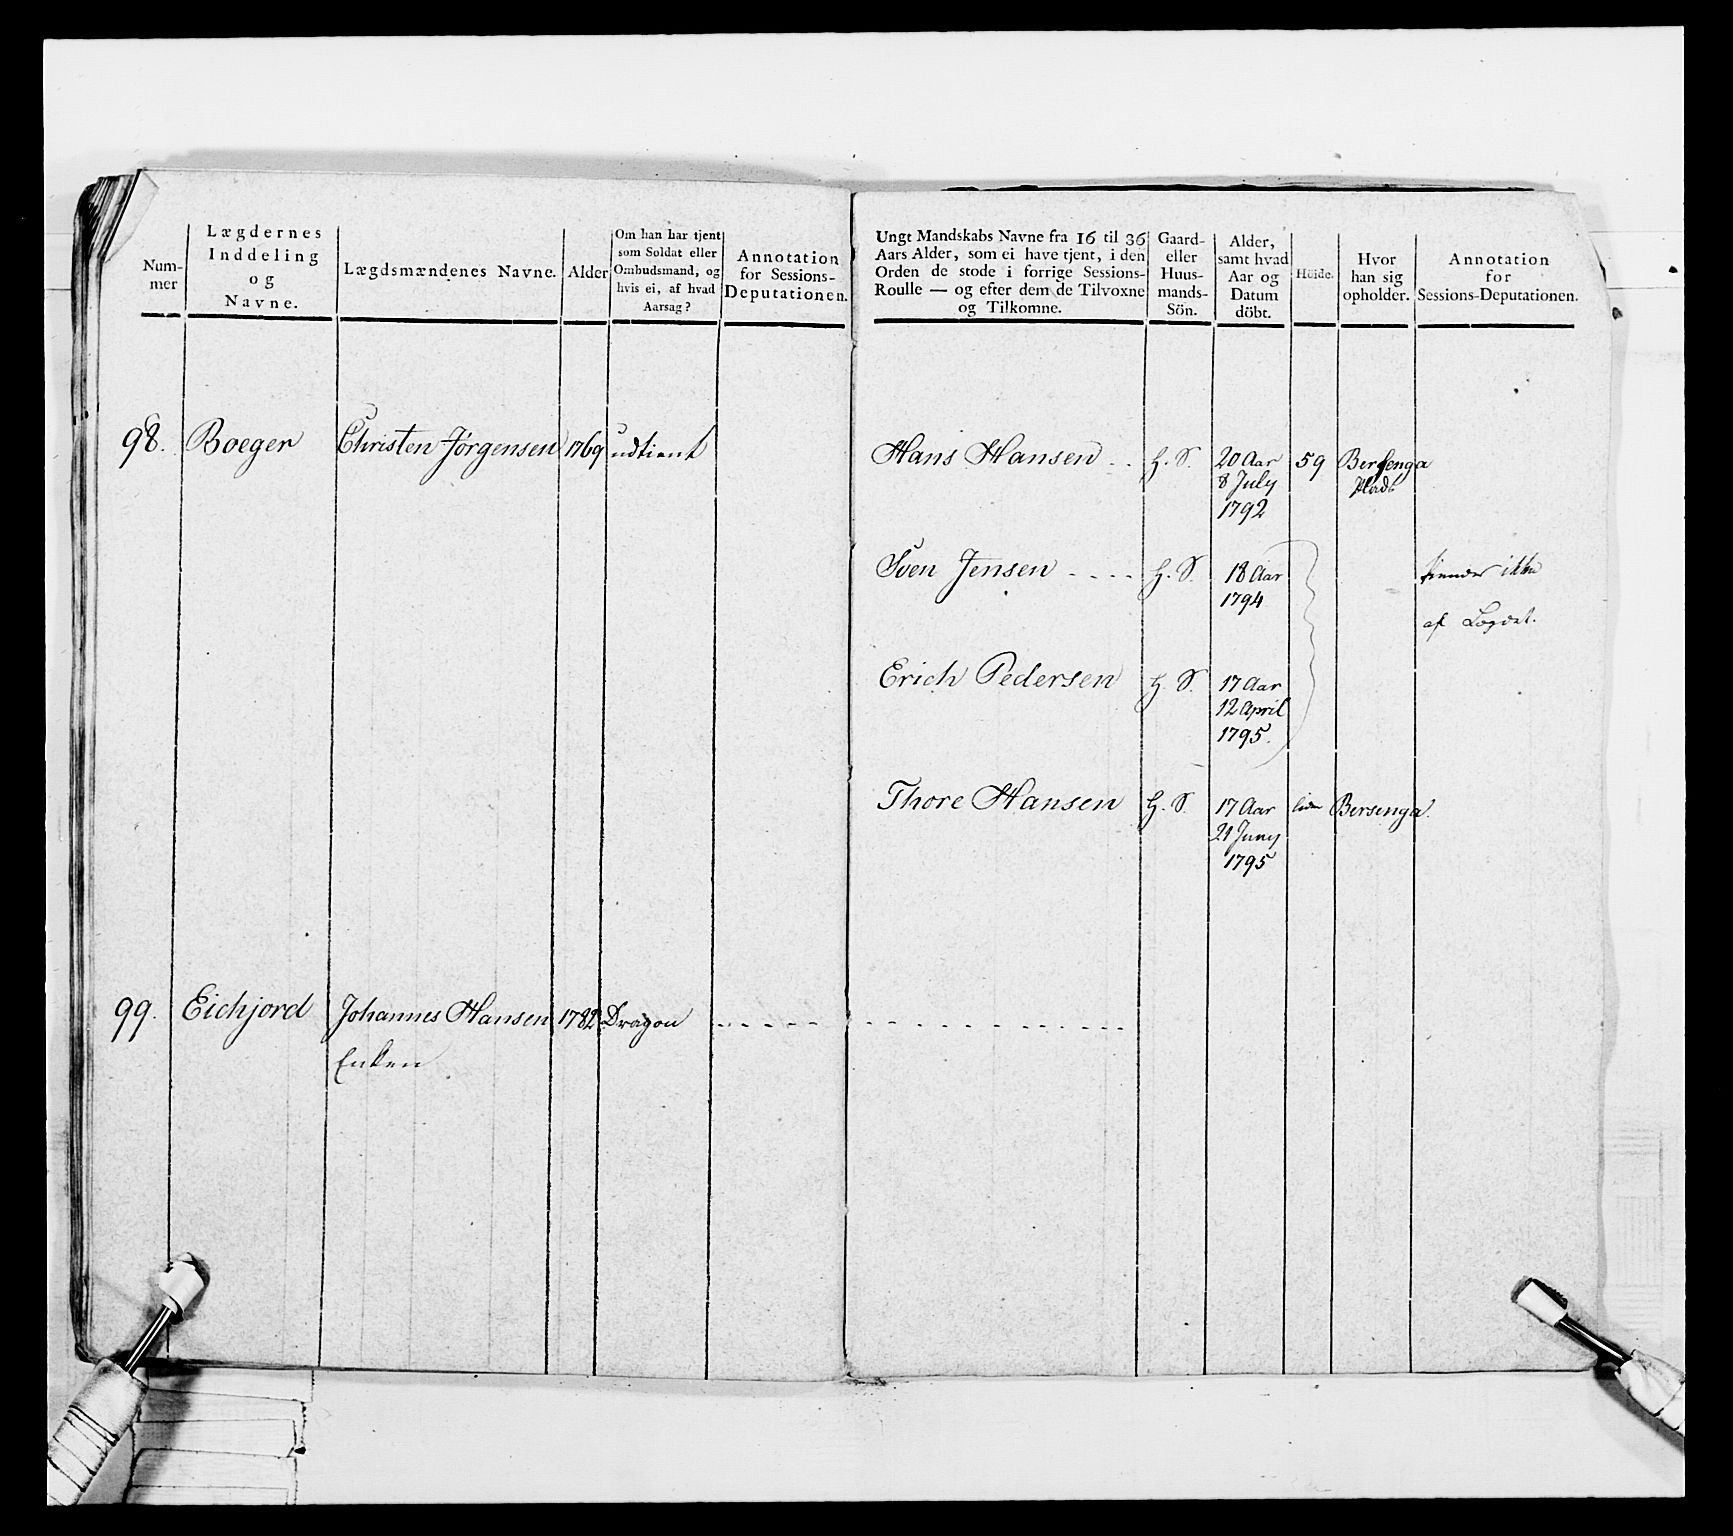 Num-
mer
Lægdernes
Inddeling
og
Navne.
Lægdsmændenes Navne.
Alder
Om han har tjent
som Soldat eller
Ombudsmand, og
hvis ei, af hvad
Aarsag?
Annotation
for Sessions-
Deputationen.
98. Boeger Christen Jørgensen 1769 udtient
99. Eichjord Johannes Hansen 1782 Dragon
Enken
Ungt Mandskabs Navne fra 16 til 36
Aars Alder, som ei have tjent, i den
Orden de stode i forrige Sessions-
Roulle — og efter dem de Tilvoxne
og Tilkomne.
Gaard-
eller
Huus-
mands-
Sön.
Alder,
samt hvad
Aar og
Datum
döbt.
Höide.
Hvor
han sig
opholder.
Annotation
for
Sessions-Deputationen.
Hans Hansen H. S. 20 Aar 59 Bersenga
8 July Plads
1792
Sven Jensen H. S. 18 Aar ikke
1794
af Lægdet.
Erich Pedersen H. S. 17 Aar
12 April
1795.
Thore Hansen H. S. 17 Aar liden Bersenga.
21 Juny
1795